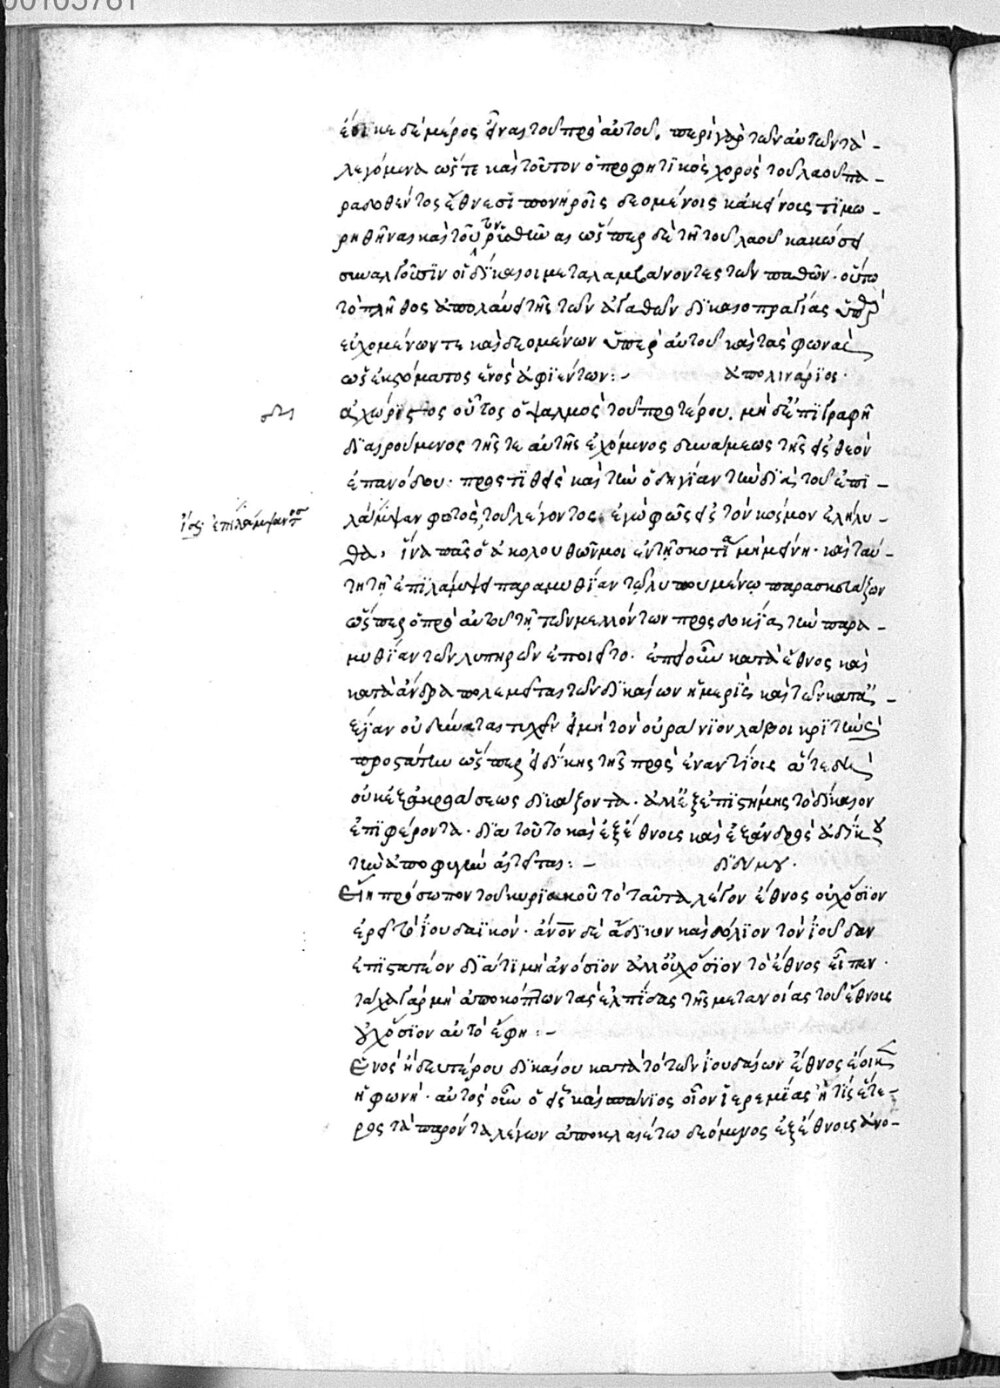 00105781
ἔοικε δὲ μέρος εἶναι τοῦ πρὸ αὐτοῦ. περὶ γὰρ τῶν αὐτῶν τὰ
λεγόμενα ὥστε καὶ τοῦτον ὁ προφητικὸς χορὸς τοῦ λαοῦ πα-
ραδοθέντος ἔθνεσι πονηροῖς δεομένοις κἀκείνοις τιμω-
ρηθῆναι καὶ τοῦτον ὥσπερ δὲ τῇ τοῦ λαοῦ κακώσει
συναλγοῦσιν οἱ δίκαιοι μεταλαμβάνοντες τῶν παθῶν. οὕτω
τὸ πλῆθος ἀπολαύει τῆς τῶν ἀγαθῶν δικαιοπραγίας
εὐχομένων τε καὶ δεομένων ὑπὲρ αὐτοῦ καὶ τὰς φωνὰς
ὡς ἐκ στόματος ἑνὸς ἀφιέντων:- ἀπολινάριος.
ἀχώριστος οὗτος ὁ ψαλμὸς τοῦ προτέρου. μηδὲ ἐπιγραφῇ
διαιρούμενος τῆς τε αὐτῆς ἐχόμενος δυνάμεως τῆς εἰς θεὸν
ἐπανόδου. προστιθεὶς καὶ τὴν ὁδηγίαν τὴν διὰ τοῦ ἐπι-
ἴσως ἐπιλάμψαντος
λάμψαν φωτὸς, τοῦ λέγοντος. ἐγὼ φῶς εἰς τὸν κόσμον ἐλήλυ-
θα, ἵνα πᾶς ὁ ἀκολουθῶν μοι ἐν τῇ σκοτίᾳ μὴ μείνῃ. καὶ ταύ-
τῃ τῇ ἐπιλάμψει παραμυθίαν τῷ λυπουμένῳ παρασκευάζων
ὥσπερ ὁ πρὸ αὐτοῦ τῇ τῶν μελλόντων προσδοκίᾳ τὴν παρα-
μυθίαν τῶν λυπηρῶν ἐποιεῖτο. ἐπεὶ οὖν κατὰ ἔθνος καὶ
κατὰ ἄνδρα πολεμεῖται τῶν δικαίων ἡ μερὶς καὶ τῶν κατ' ἀ-
ξίαν οὐ δύναται τυχεῖν εἰ μὴ τὸν οὐράνιον λάβοι κριτὴν
προστάτην ὥσπερ ἐκδίκης τῆς πρὸς ἐναντίους
οὐκ ἐξ ἀκροάσεως δικάζοντα. ἀλλ' ἐξ ἐπιστήμης τὸ δίκαιον
ἐπιφέροντα. διὰ τοῦτο καὶ ἐξ ἔθνους καὶ ἐξ ἀνδρὸς ἀδίκου
τὴν ἀποφυγὴν αἰτεῖται:- διδύμου.
Εἴη πρόσωπον τοῦ κυριακοῦ τὸ ταῦτα λέγον ἔθνος οὐχ ὅσιον
ἐρεῖ τὸ ἰουδαϊκόν. ἄνον δὲ ἄδικον καὶ δόλιον τὸν ἰούδαν
ἐπιστατέον διατί μὴ ἀνόσιον ἀλλ' οὐχ ὅσιον τὸ ἔθνος εἶπεν.
τάχα γὰρ μὴ ἀποκόπτων τὰς ἐλπίδας τῆς μετανοίας τοῦ ἔθνους
οὐχ ὅσιον αὐτὸ ἔφη:-
Ἑνὸς ἢ δευτέρου δικαίου κατὰ τὸ τῶν ἰουδαίων ἔθνος ἔοικεν
ἡ φωνή. αὐτὸς οὖν ὁ εἷς καὶ σπάνιος οἷον ἱερεμίας ἤ τις ἕτε-
ρος τὰ παρόντα λέγων ἀποκλαιέτω δεόμενος ἐξ ἔθνους ἀνο-